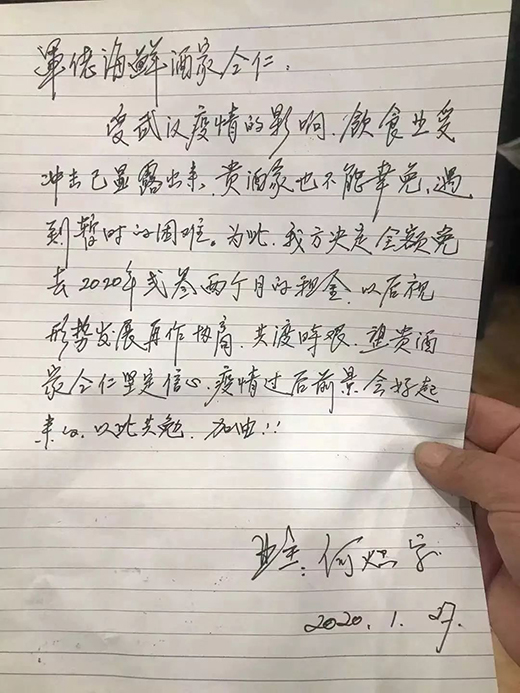 海鲜酒家仝仁：
受武汉疫情的影响，飲食业受
冲击已显露出来，贵酒家也不能幸免，遇
到暂时的困难。为此，我方决定全额免
去2020年弍叁两个月的租金，以后视
形势发展再作协商，共渡時艰，望贵酒
家仝仁坚定信心，疫情过后前景会好起
来的，以此共勉，加油!!
业主：何
2020.1.27.